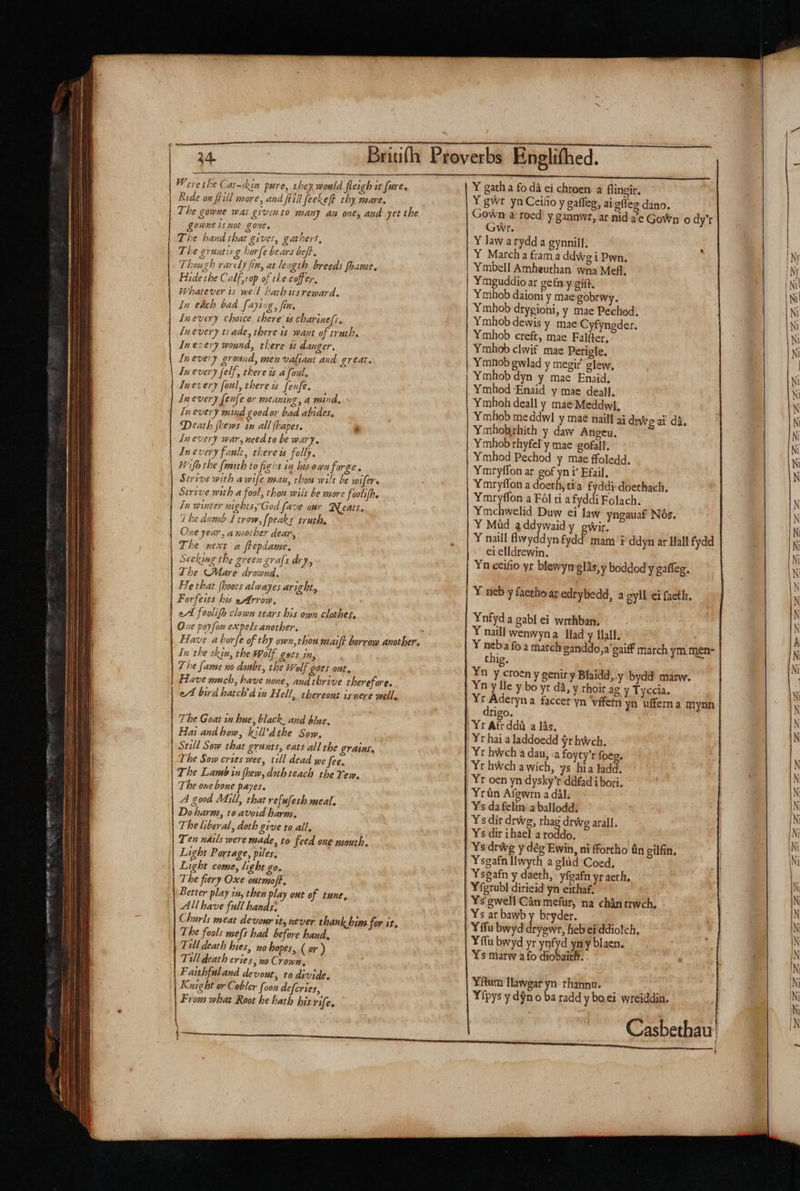 34 Britiſh Proverbs Engliſhed.
Were the Cat-skin pure, they would fleigh it ſure.
Ride on ſtill more, and ſtill ſeekeſt thy mare.
The gowne was given to many an one, and yet the
gowne is not gone.
The hand that gives, gathers.
The grunting horſe bears beſt.
Though rarely ſin, at length breeds ſhame.
Hide the Calf, rop of the coffer.
Whatever is well hath us reward.
In each bad ſaying, ſin.
In every choice there is charineſs.
In every trade, there is want of truth.
In every wound, there is danger.
In every ground, men valiant and great.
In every ſelf, there is a ſoul.
In every ſoul, there is ſenſe.
In every ſenſe or meaning, a mind.
In every mind good or bad abides.
Death ſhews in all ſhapes.
In every war, need to be wary.
In every fault, there is folly.
Wiſh the ſmith to fight in his own forge.
Strive with a wiſe man, thou wilt be wiſer.
Strive with a fool, thou wilt be more fooliſh.
In winter nights, God ſave our Neats.
The dumb I trow, ſpeaks truth.
One year, a mother dear,
The next a ſtepdame.
Seeking the green graſs dry,
The Mare drownd.
He that ſhoots alwayes aright,
Forfeits his Arrow.
A fooliſh clown tears his own clothes.
One poyſon expels another.
Have a horſe of thy own, thou maiſt borrow another.
In the skin, the Wolf goes in,
The ſame no doubt, the Wolf goes out.
Have much, have none, and thrive therefore.
A bird hatch'd in Hell, thereout is nere well.
The Goat in hue, black, and blue.
Hai and how, kill'd the Sow.
Still Sow that grunts, eats all the grains.
The Sow cries wee, till dead we ſee.
The Lamb in ſhew, doth teach the Yew.
The one bone payes.
A good Mill, that refuſeth meal.
Do harm, to avoid harm.
The liberal, doth give to all.
Ten nails were made, to feed one mouth.
Light Portage, piles.
Light come, light go.
The fiery Oxe outmoſt.
Better play in, then play out of tune,
All have full hands.
Churls meat devour it, never thank him for it.
The fools meſs had before hand,
Till death hies, no hopes, (or)
Till death cries, no Crown.
Faithful and devout, to divide.
Knight or Cobler ſoon deſcries,
From what Root he hath his riſe.
Y gath a fo dà ei chroen a flingir.
Y gŵr yn Ceiſio y gaſſeg, ai gſſeg dano.
Goŵn a roed y gannwr, ar nid a'e Goŵn o dy'r
Gŵr.
Y law a rydd a gynnill.
Y March a fram a ddŵg i Pwn.
Ymbell Amheuthan wna Meſl.
Ymguddio ar gefn y giſt.
Ymhob daioni y mae gobrwy.
Ymhob drygioni, y mae Pechod.
Ymhob dewis y mae Cyfyngder.
Ymhob creft, mae Falſter.
Ymhob clwif mae Perigle.
Ymhob gwlad y megir glew.
Ymhob dyn y mae Enaid.
Ymhod Enaid y mae deall.
Ymhoh deall y mae Meddwl.
Ymhob meddwl y mae naill ai drŵg ai dà.
Ymhobrhith y daw Angeu.
Ymhob rhyfel y mae gofall.
Ymhod Pechod y mae ffoledd.
Ymryſſon ar gof yn i' Efail.
Ymryſſon a doeth, ti a fyddi doethach.
Ymryſſon a Fôl ti a fyddi Folach.
Ymchwelid Duw ei law yngauaf Nôs.
Y Mûd a ddywaid y gwir.
Y naill flwyddyn fydd mam i ddyn ar llall fydd
ei elldrewin.
Yn ceiſio yr blewyn glàs, y boddod y gaſſeg.
Y neb y faetho ar edrybedd, a gyll ei faeth.
Ynfyd a gabl ei wrthban.
Y naill wenwyn a llad y llall.
Y neb a fo a march ganddo, a gaiff march ym men-
thig.
Yn y croen y genir y Blaidd, y bydd marw.
Yn y lle y bo yr dà, y rhoir ag y Tyccia.
Yr Aderyn a faccer yn ʋffern yn uffern a mynn
drigo.
Yr Afr ddù a lâs.
Yr hai a laddoedd ŷr hŵch.
Yr hŵch a dau, a foyty'r ſoeg.
Yr hŵch a wich, ys hi a ladd.
Yr oen yn dysky'r ddfad i bori.
Yr ûn Aſgwrn a dàl.
Ys da felin a ballodd.
Ys dir drŵg, rhag drŵg arall.
Ys dir i hael a roddo.
Ys drŵg y dég Ewin, ni ffortho ûn gilfin.
Ysgafn llwyth a glûd Coed.
Ysgafn y daeth, yſgafn yr aeth.
Yſgrubl dirieid yn eithaf.
Ys gwell Càn meſur, na chàn trwch.
Ys ar bawb y bryder.
Yſſu bwyd drygwr, heb ei ddiolch.
Yſſu bwyd yr ynfyd yn y blaen.
Ys marw a fo diobaith.
Yſtum llawgar yn rhannu.
Yſpys y dŷn o ba radd y bo ei wreiddin.
Casbethau